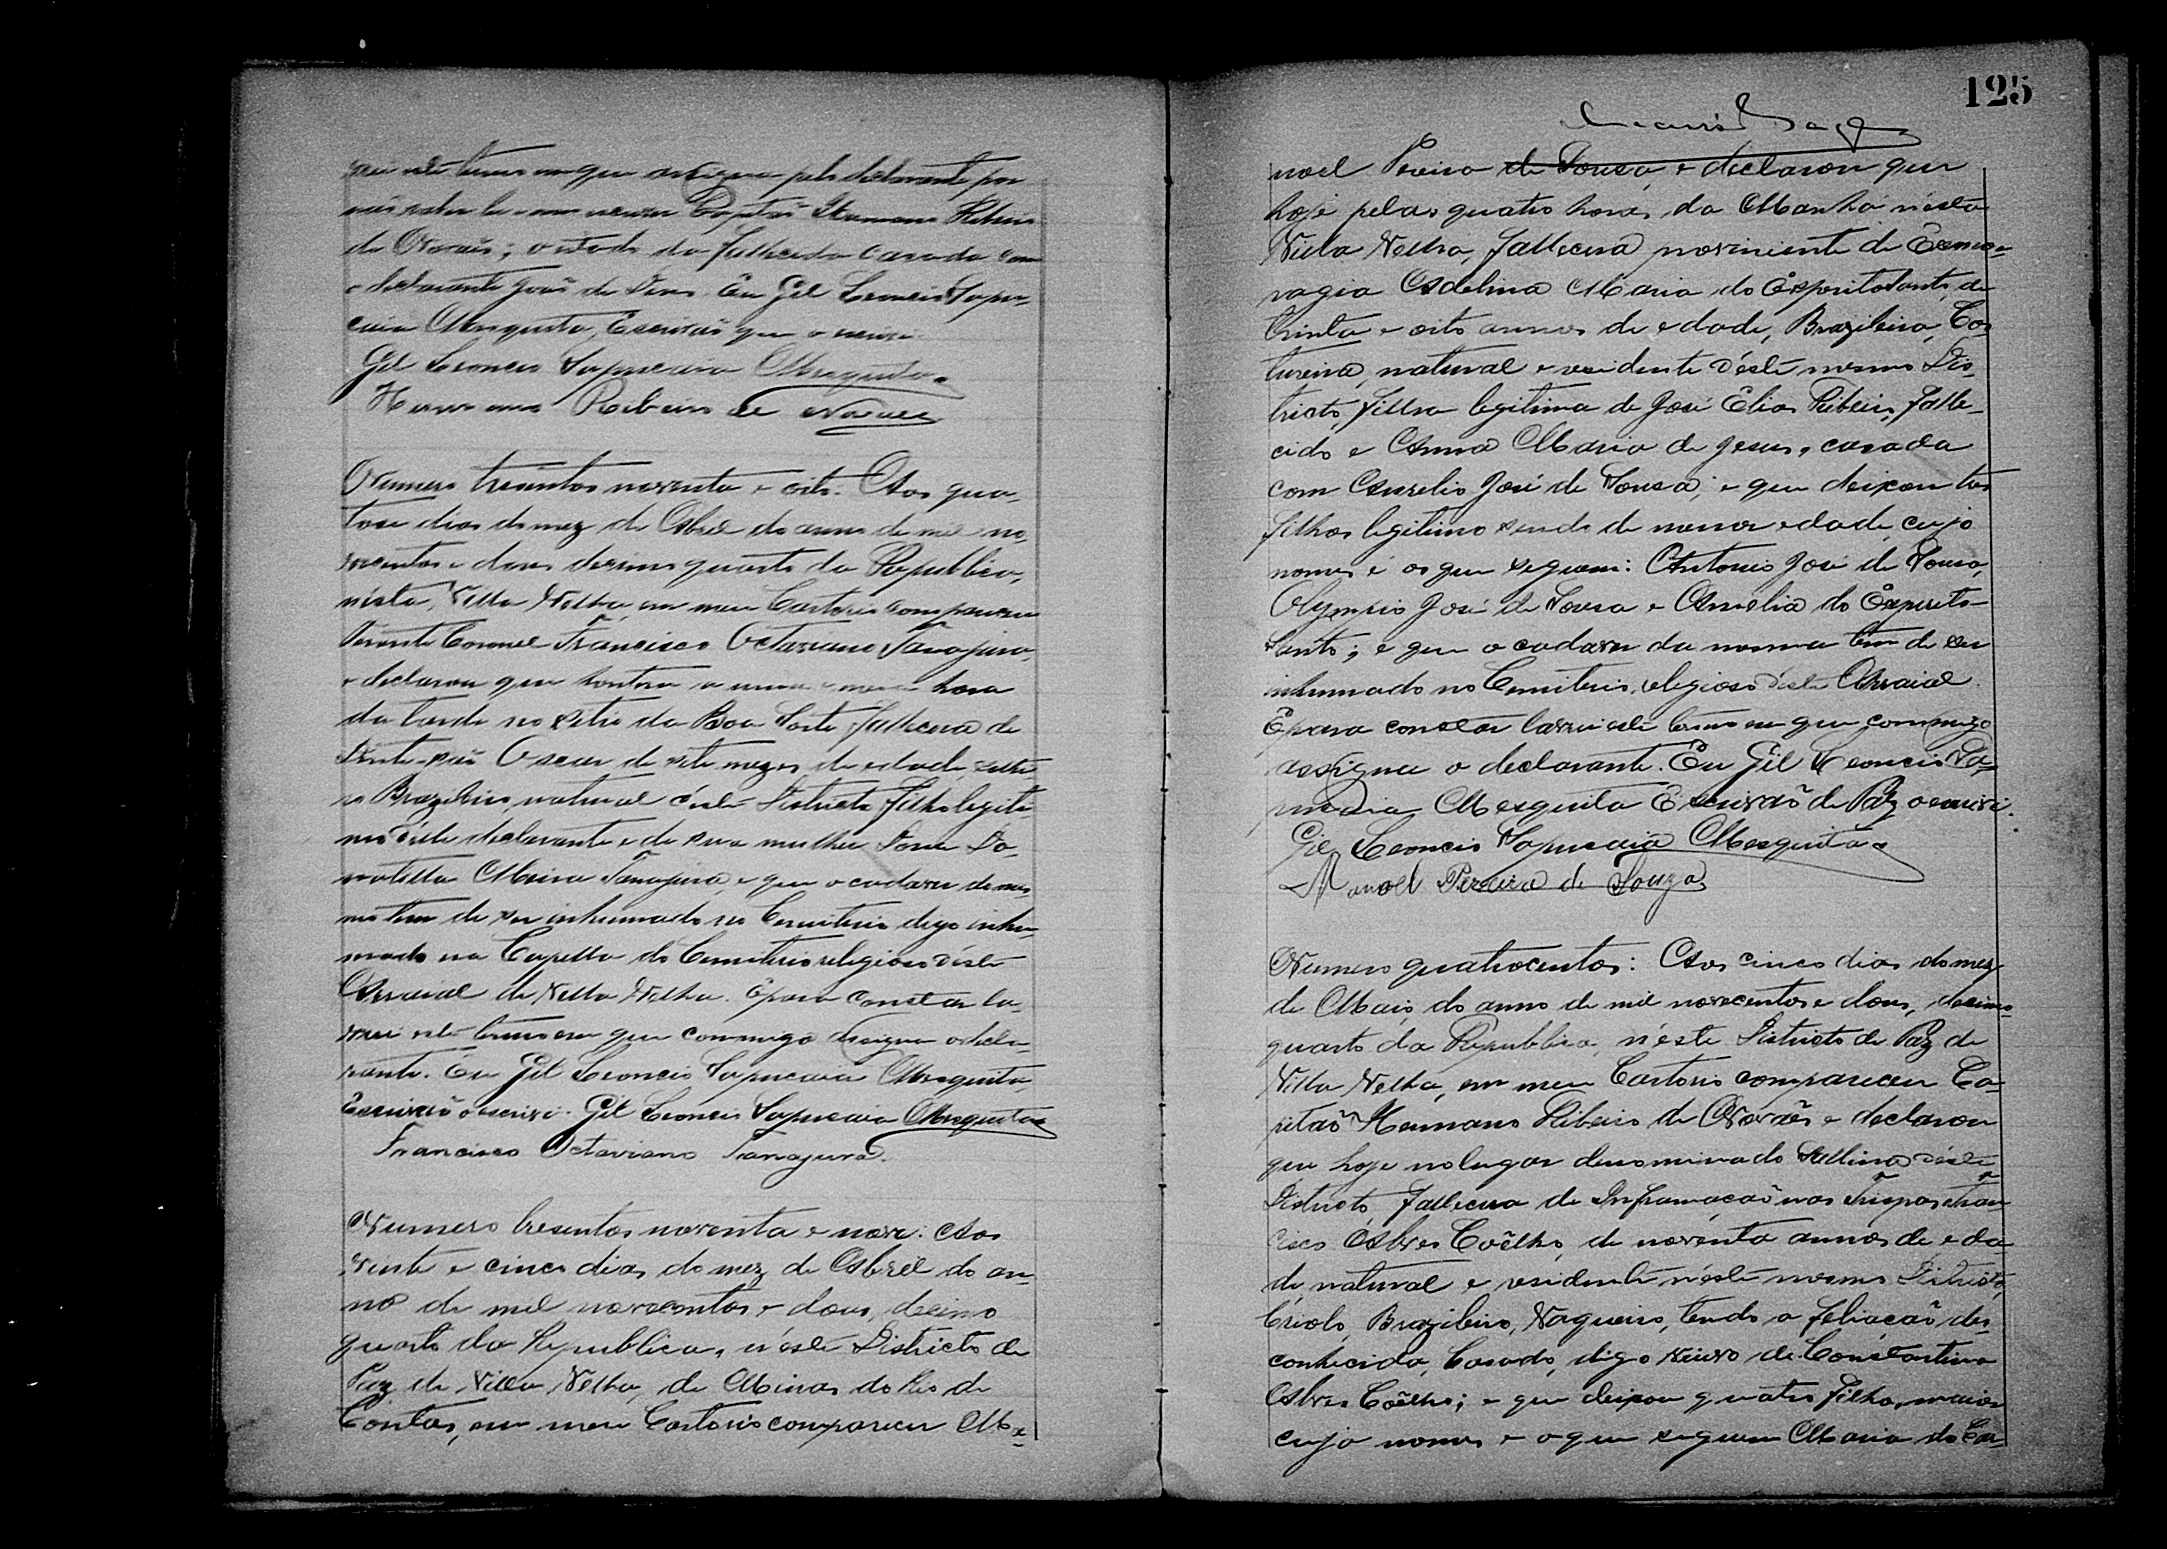 rei este termo em que assigna pelo declarante por
não saber ler nem escrever Capitão Hermano Ribeiro
de Novaes; o estado da fallecida casada com
o declarante João de Deus. Eu Gil Leoncio Sapu-
caia Mesquita, Escrivão que o escrevi.
Gil Leoncio Sapucaia Mesquita
Hermano Ribeiro de Novaes
Numero tresentos noventa e oito. Aos qua-
torse dias do mez de Abril do anno de mil no-
vecentos e dous decimo quarto da Republica,
nésta Villa Velha, em meu Cartorio compareceu
Tenente Coronel Francisco Octaviano Tanajura,
e declarou que hontem a uma e meia hora
da tarde no Sitio da Boa Sorte fallecera de
Oscar de sete mezes de edade, soltei-
ro Brazileiro, natural déste Districto filho legiti-
mo déste declarante e de sua mulher Dona Do-
natilla Meira Tanajura, e que o cadaver do mes-
mo tem de ser inhumado no Cemiterio digo inhu-
mado na Capella do Cemiterio religioso déste
Arraial de Villa Velha. E para constar la-
vrei este termo em que commigo assigna o decla-
rante. Eu Gil Leoncio Sapucaia Mesquita,
Escrivão o escrevi. Gil Leoncio Sapucaia Mesquita
Francisco Octaviano Tanajura.
Numero tresentos noventa e nove: Aos
vinte e cinco dias do mez de Abril do an-
no de mil novecentos e dous, decimo
quarto da Republica, n'éste Districto de
Paz de Villa Velha, de Minas do Rio de
Contas, em meu Cartorio compareceu Ma-
125
noel Pereira de Sousa, e declarou que
hoje pelas quatro horas da Manhã, nésta
Villa Velha, fallecera proviniente de Hemor-
ragia Adelina Maria do Espirito Santo, de
trinta e oito annos de edade, Brazileira, Cos-
tureira, natural e residente déste mesmo Dis-
tricto, filha legitima de José Elias Ribeiro, falle-
cido e Anna Maria de Jesus, casada
com Aurelio José de Sousa; e que deixou tres
filhos legitimo sendo de menor edade, cujo
nomes é os que seguem: Antonio José de Sousa,
Olympio José de Sousa e Amelia do Espirito-
Santo; e que o cadaver da mesma tem de ser
inhumado no Cemiterio religioso déste Arraial.
E para constar lavrei este termo em que commigo
assigna o declarante. Eu Gil Leoncio Sa-
pucaia Mesquita Escrivão de Paz o escrivi.
Gil Leoncio Sapucaia Mesquita
Manoel Pereira de Souza
Numero quatrocentos: Aos cinco dias do mez
de Maio do anno de mil novecentos e dous, decimo
quarto da Republica, n'éste Districto de Paz de
Villa Velha, em meu Cartorio compareceu Ca-
pitão Hermano Ribeiro de Novaes e declarou
que hoje no lugar denominado déste
Districto, fallecera de Inframação nas Tripas Fran-
cisco Alves Coêlho, de noventa annos de eda-
de, natural e residente n'éste mesmo Districto,
Criolo, Brazileiro, Vaqueiro, tendo a feliação des-
conhecida, Casado, digo viuvo de Constantina
Alves Coêlho; e que deixou quatro filhos, maior
cujo nomes e o que seguem Maria do Car-